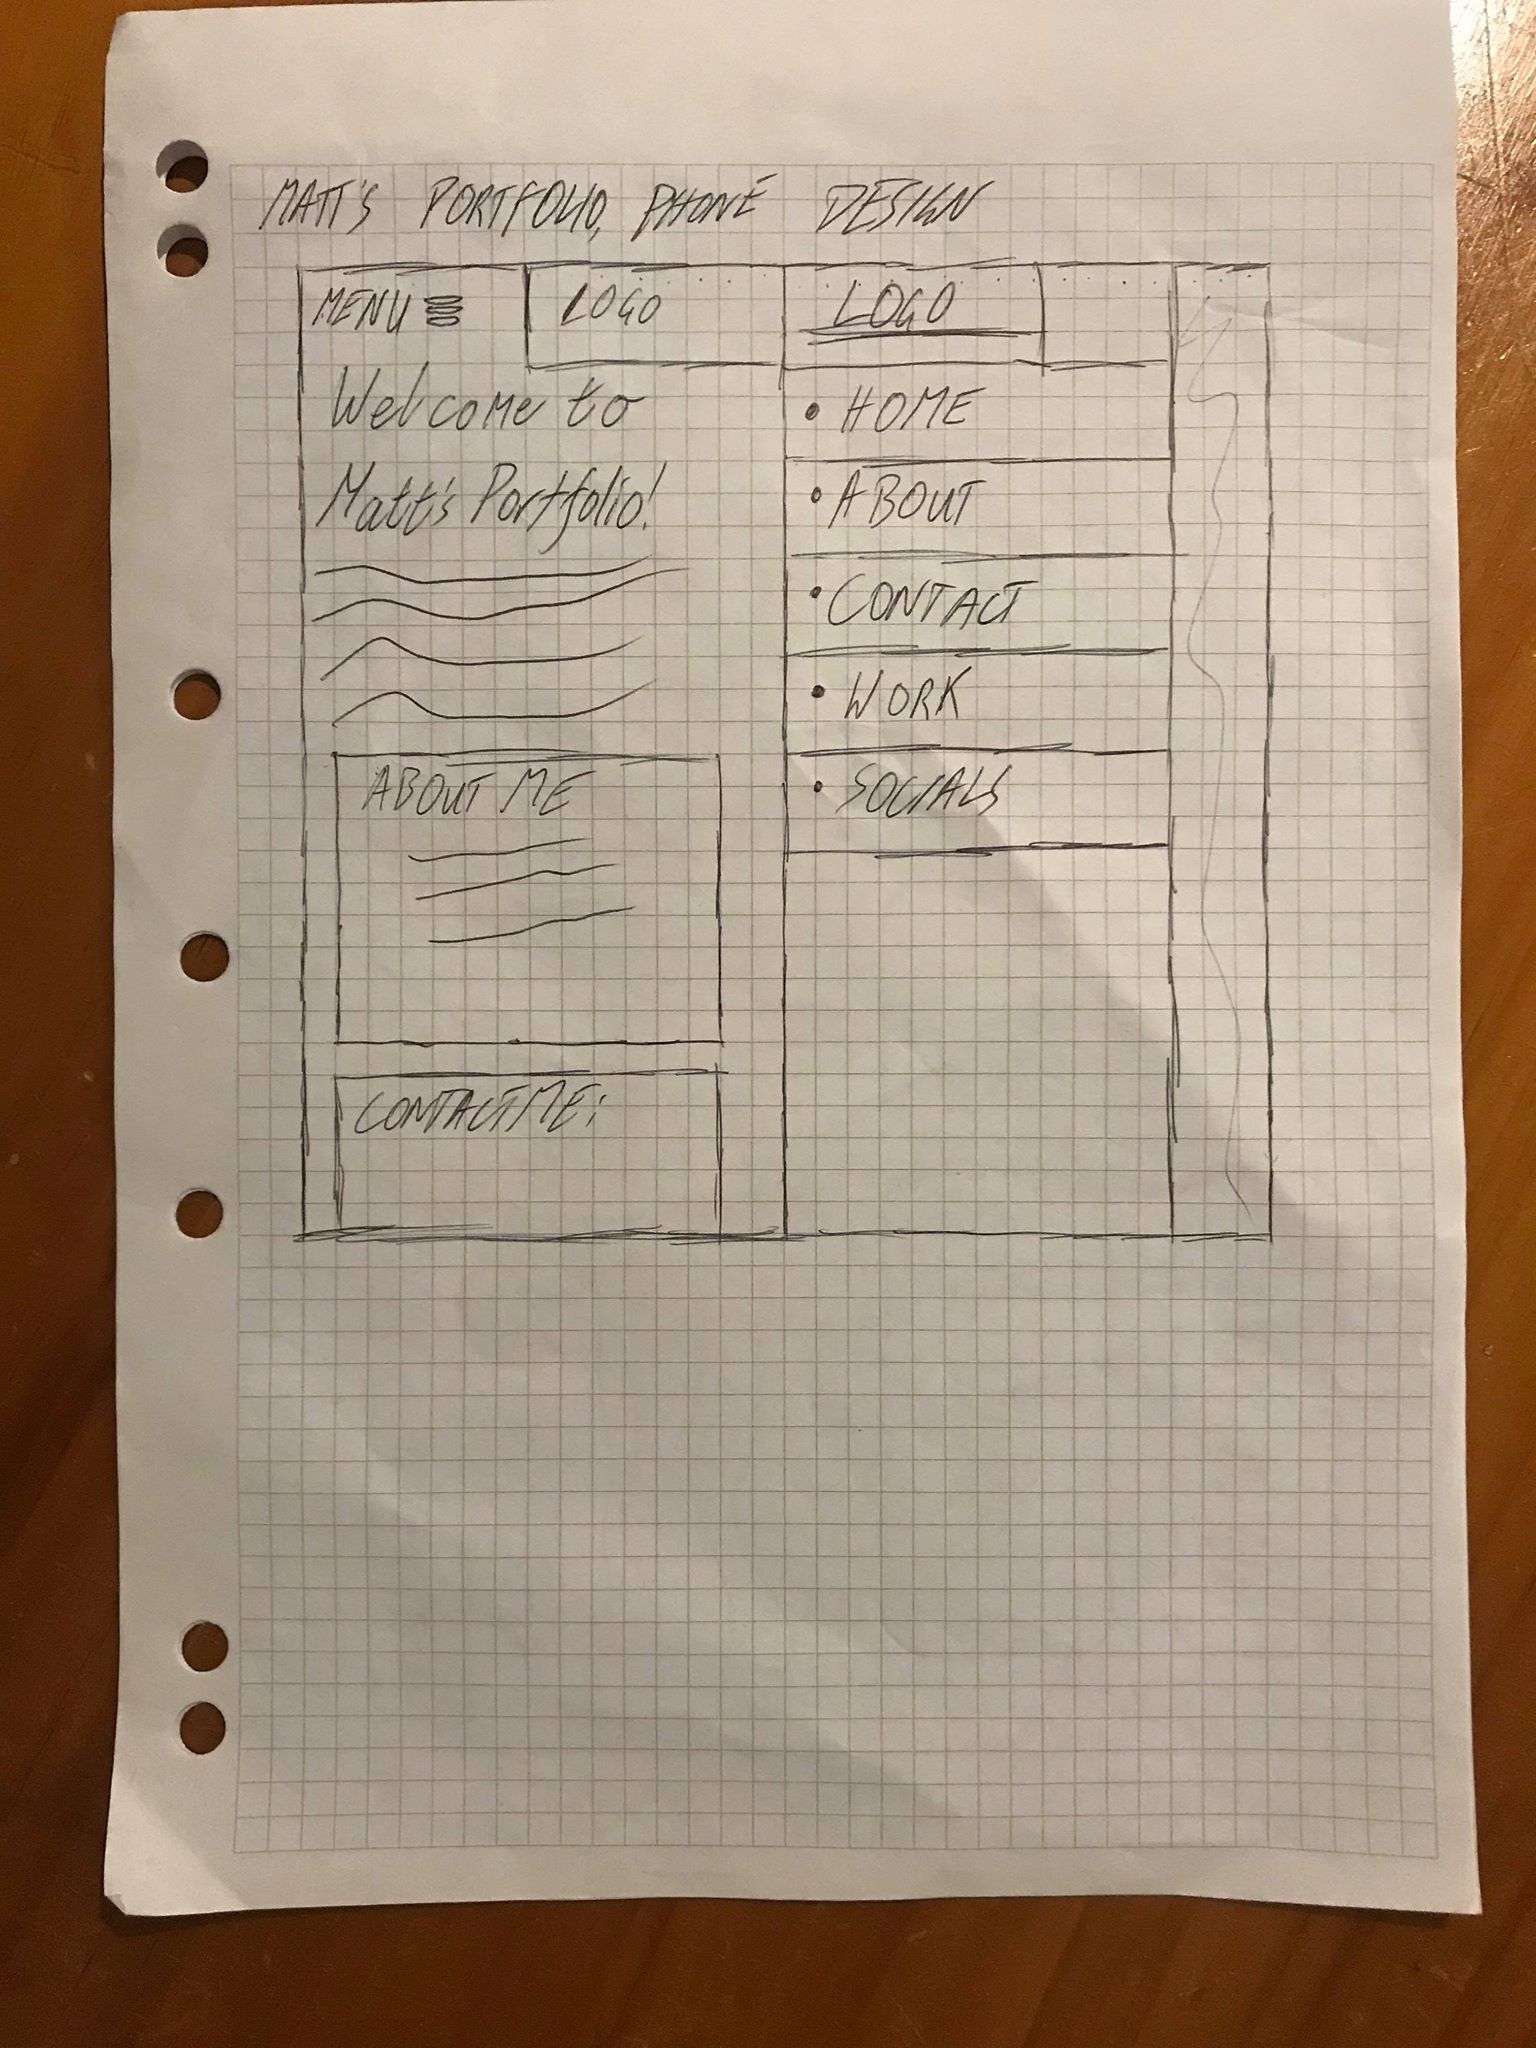 MATT'S PORTFOLIO, PHONE DESIGN
MENU
LOGO
Welcome to
Matt's Portfolio!
ABOUT ME
CONTACT ME:
LOGO
• HOME
• ABOUT
• CONTACT
• WORK
• SOCIALS